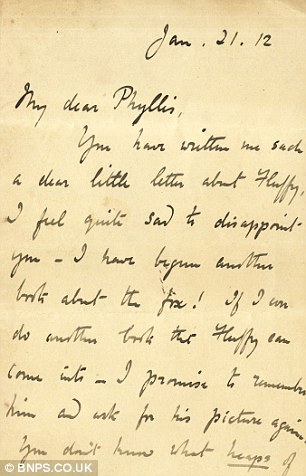 Jan. 21. 12
My dear Phyllis,
You have written me such
a dear little letter about Fluffy,
I feel quite sad to disappoint
you - I have begun another
book about the fox! If I can
do another book that Fluffy can
come into - I promise to remember
him and ask for his picture again.
You don't know what heaps of
© BNPS.CO.UK